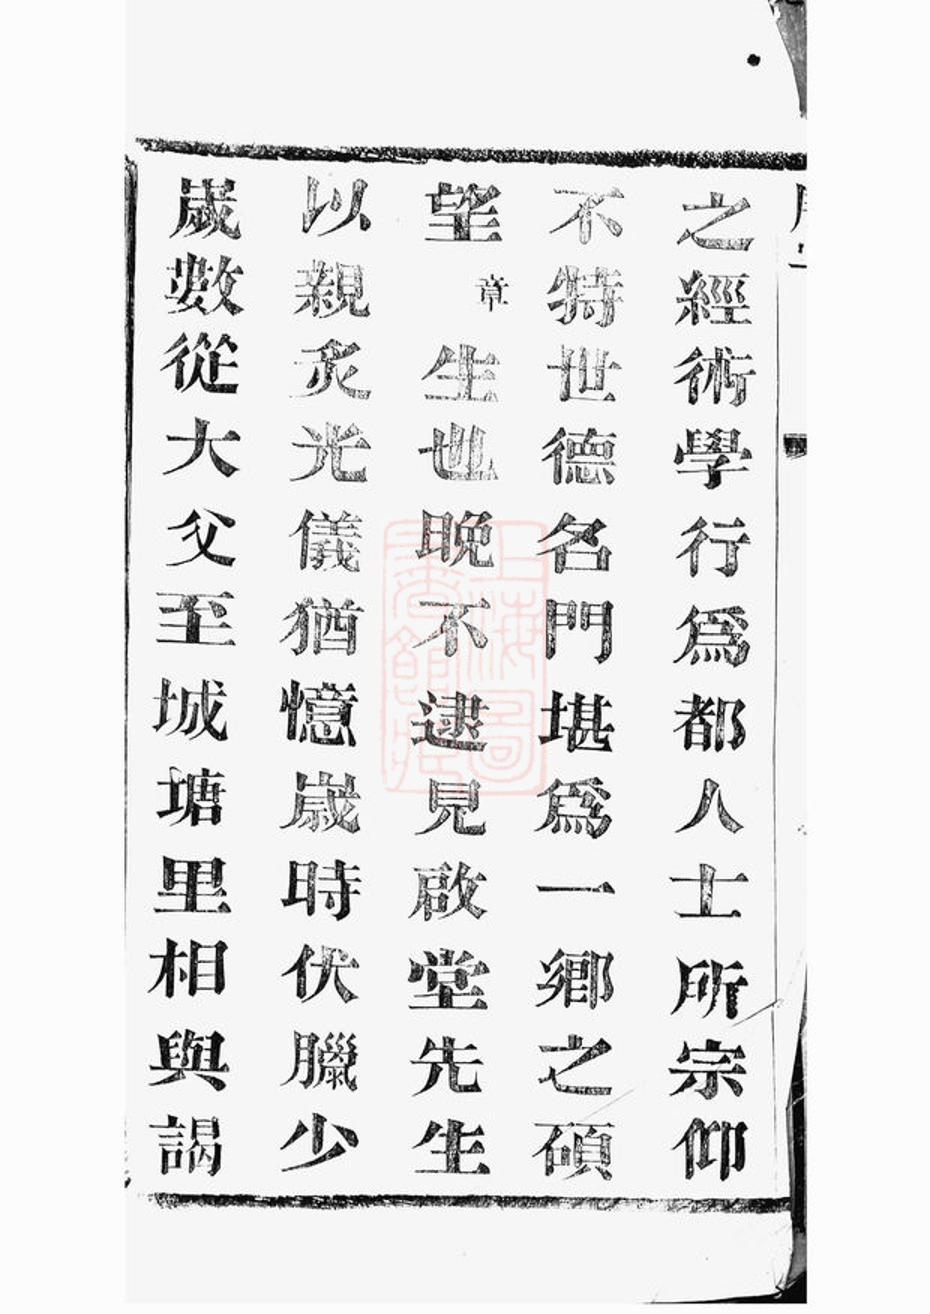 之經術學行爲都人士所宗仰
不特世德名門堪爲一鄉之碩
望章生也晚不逮見啟堂先生
以親炙光儀猶憶歲時伏臘少
歲數從大父至城塘里相與謁
上海圖
書館藏